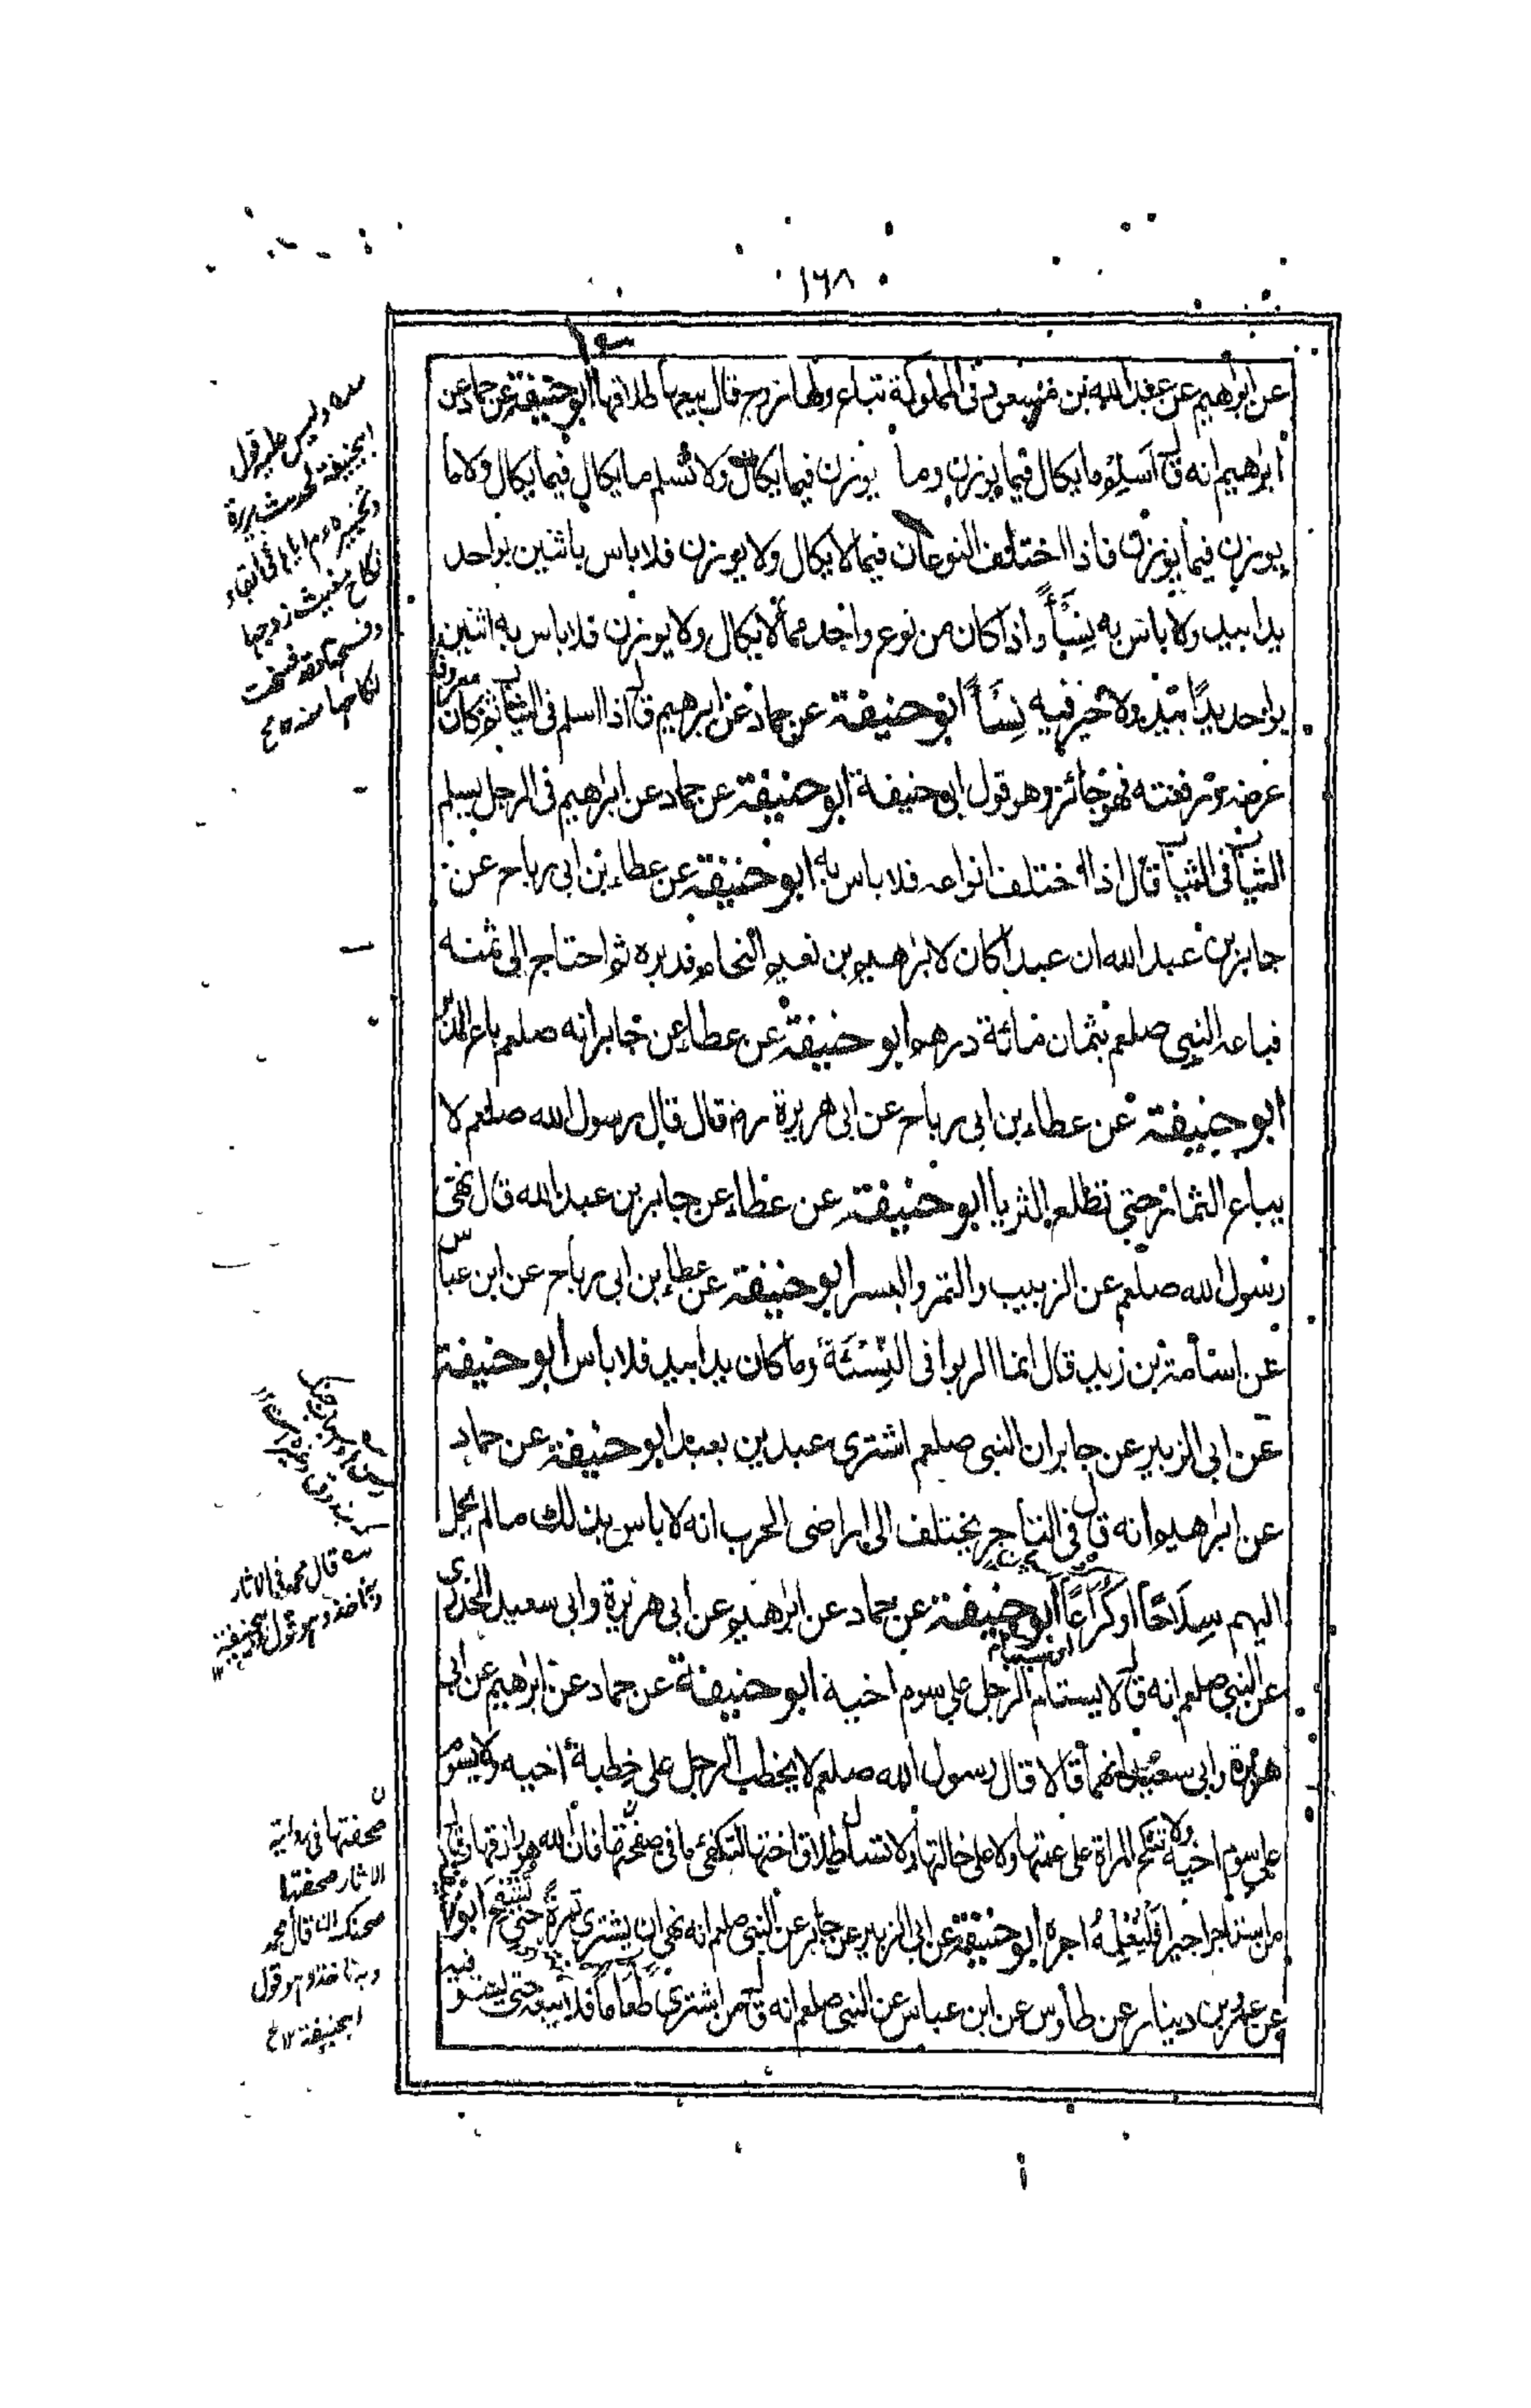 ١٦٨
عن ابراهيم عن عبد الله بن مسعود في المملوكة تباع ولها زوج قال بيعها طلاقها ابو حنيفة عن حماد عن
ابراهيم انه قال اسلم ما يكال فيما يوزن وما يوزن فيما يكال ولا تسلم ما يكال فيما يكال ولا ما
يوزن فيما يوزن فاذا اختلف النوعان فيما لا يكال ولا يوزن فلا باس باثنين بواحد
يدا بيد ولا باس به نسأ واذا كان من نوع واحد مما لا يكال ولا يوزن فلا باس به اثنين
بواحد يدًا بيد ولا خير فيه نِسَأً ابو حنيفة عن حماد عن ابرهيم قال اذا اسلم في الثياب ثم كان معروفا
عرضه ورقعته فهو جائز وهو قول ابي حنيفة ابو حنيفة عن حماد عن ابراهيم في الرجل يسلم
الثياب في الثياب قال اذا اختلف انواعه فلا باس به ابو حنيفة عن عطاء بن ابي رباح عن
جابر بن عبد الله ان عبدا كان لابرهيم بن نعيم النحام فدبره ثم احتاج الى ثمنه
فباعه النبي صلعم بثمان مائة درهم ابو حنيفة عن عطاء عن جابر انه صلعم باع المدبر
ابو حنيفة عن عطاء بن ابي رباح عن ابي هريرة رض قال قال رسول الله صلعم لا
يباع الثمار حتى تطلع الثريا ابو حنيفة عن عطاء عن جابر بن عبد الله قال نهى
رسول الله صلعم عن الزبيب والتمر والبسر ابو حنيفة عن عطاء بن ابي رباح عن ابن عباس
عن اسامة بن زيد قال انما الربوا في النسئة وما كان يدا بيد فلا باس ابو حنيفة
عن ابي الزبير عن جابر ان النبي صلعم اشترى عبدين بعبد ابو حنيفة عن حماد
عن ابرهيم انه قال في التاجر يختلف الى اراضى الحرب انه لا باس بذلك ما لم يحمل
اليهم سِلَاحًا او كُرَاعًا ابو حنيفة عن حماد عن ابرهيم عن ابي هريرة وابي سعيد الخدري
عن النبي صلعم انه قال لا يستام الرجل على سوم اخيه ابو حنيفة عن حماد عن ابراهيم عن ابي
هريرة وابي سعيد انهما قالا قال رسول الله صلعم لا يخطب الرجل على خِطبة اخيه ولا يسوم
على سوم اخيه ولا تنكح المراة على عمتها ولا على خالتها ولا تسأل طلاق اختها لتكفئ ما في صفحتها فان الله هو رازقها
من استاجر اجيرا فَلْيُعْلِمْهُ اجره ابو حنيفة عن ابي الزبير عن جابر عن النبي صلعم انه نهى ان يشترى ثمرةً حتى تشقح ابو
عن عمرو بن دينار عن طاوس عن ابن عباس عن النبي صلعم انه قال من اشترى طَعَامًا فلا يبيعه حتى يستوفيه
وليس عليه قول
ابيحنيفة لحديث بريرة
نكاح مغيث زوجها
سه قال محمد في الاثار
وبه ناخذ وهو قول ابيحنيفة
صحفتها في رواية
الاثار صحفتها
قال محمد
وبه ناخذ وهو قول
ابيحنيفة ١٢ ع